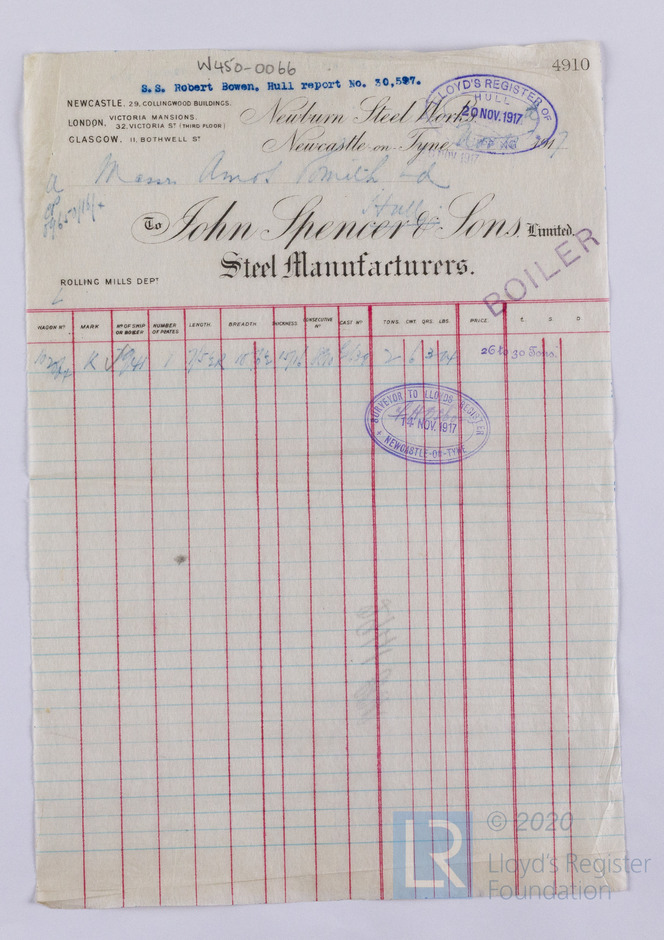 W450-0066
4910
S.S. Robert Bowen. Hull report No. 30,597.
NEWCASTLE. 29, COLLINGWOOD BUILDINGS.
LONDON. VICTORIA MANSIONS.
32, VICTORIA ST (THIRD FLOOR)
GLASGOW, 11, BOTHWELL ST
LLOYD'S REGISTER OF
HULL
20 NOV. 1917
Newburn Steel Works,
Newcastle-on-Tyne
Messrs Amos Smith
Hull
To John Spencer & Sons, Limited.
Steel Manufacturers.
BOILER
ROLLING MILLS DEPT
WAGON No MARK No OF SHIP ON BOILER NUMBER OF PLATES LENGTH. BREADTH THICKNESS CONSECUTIVE No CAST No TONS. CWT. QRS. LBS. PRICE £. S. D
K 1 15/16 2 6 3 26 to 30 Tons.
SURVEYOR TO LLOYD'S REGISTER
14 NOV. 1917
NEWCASTLE-ON-TYNE
LR
© 2020
Lloyd's Register
Foundation